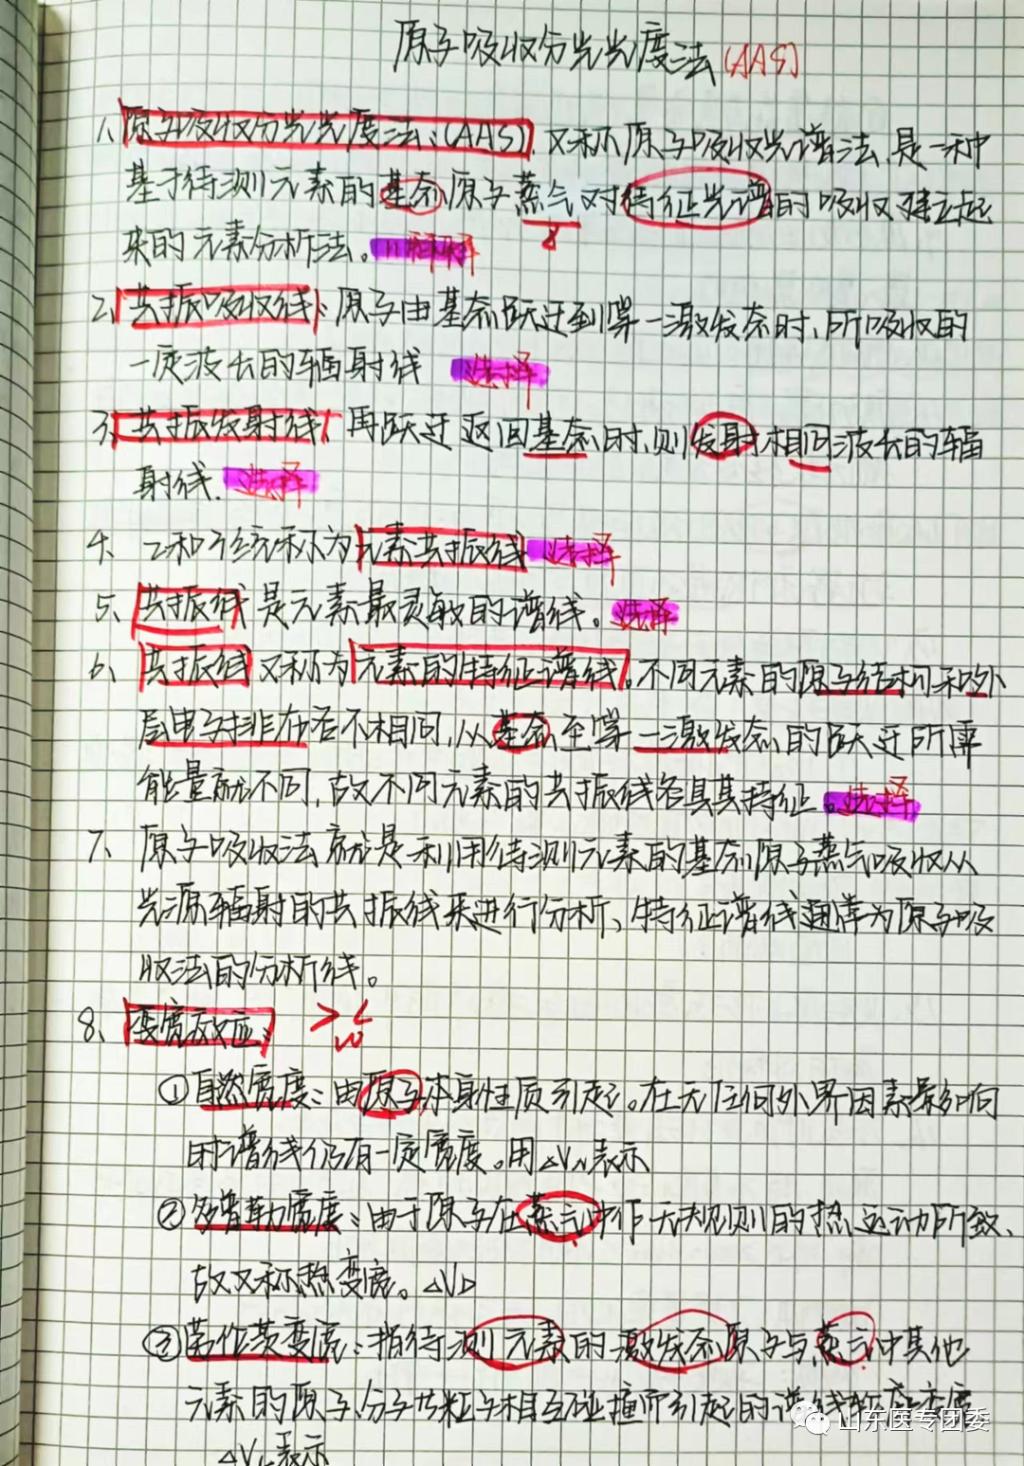 原子吸收分光光度法(AAS)
1、原子吸收分光光度法:(AAS),又称原子吸收光谱法,是一种
基于待测元素的基态原子蒸气对特征光谱的吸收建立起
来的元素分析法。
2、共振吸收线:原子由基态跃迁到第一激发态时、所吸收的
一定波长的辐射线 选择
3、共振发射线:再跃迁返回基态时,则发射相同波长的辐
射线. 选择
4、2和3统称为元素共振线 选择
5、共振线是元素最灵敏的谱线。选择
6、共振线又称为元素的特征谱线。不同元素的原子结构和外
层电子排布各不相同,从基态至第一激发态的跃迁所需
能量就不同,故不同元素的共振线各具其特征。选择
7、原子吸收法就是利用待测元素的基态原子蒸气吸收从
光源辐射的共振线来进行分析、特征谱线通常为原子吸
收法的分析线。
8、变宽效应:
①自然宽度:由原子本身性质引起。在无任何外界因素影响
时谱线仍有一定宽度。用△VN表示
②多普勒宽度:由于原子在蒸气中作无规则的热运动所致、
故又称热变宽。△VD
③劳伦茨变宽:指待测元素的激发态原子与蒸气中其他
元素的原子分子等粒子相互碰撞而引起的谱线
△VL表示
山东医专团委